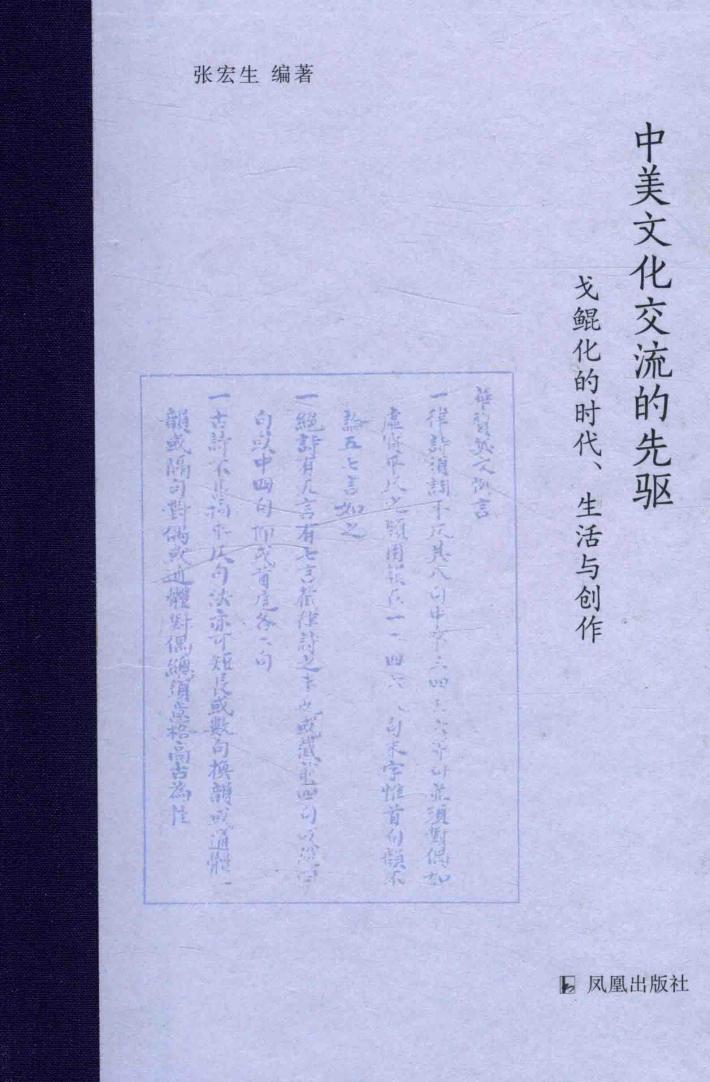 张宏生 编著
中美文化交流的先驱
戈鲲化的时代、生活与创作
華質英文例言
一律詩須調平仄其八句中第三四五六等句並須對偶如
虛實平仄之類用韻在一二四六八句末字惟首句韻不
論五七言如之
一絕詩有五言有七言律詩之半也或截前四句或後四
句或中四句或首尾各二句
一古詩不平仄句法亦可短長或數句換韻或通體一
韻或隔句對偶或通體對偶總須意格高古為佳
凤凰出版社